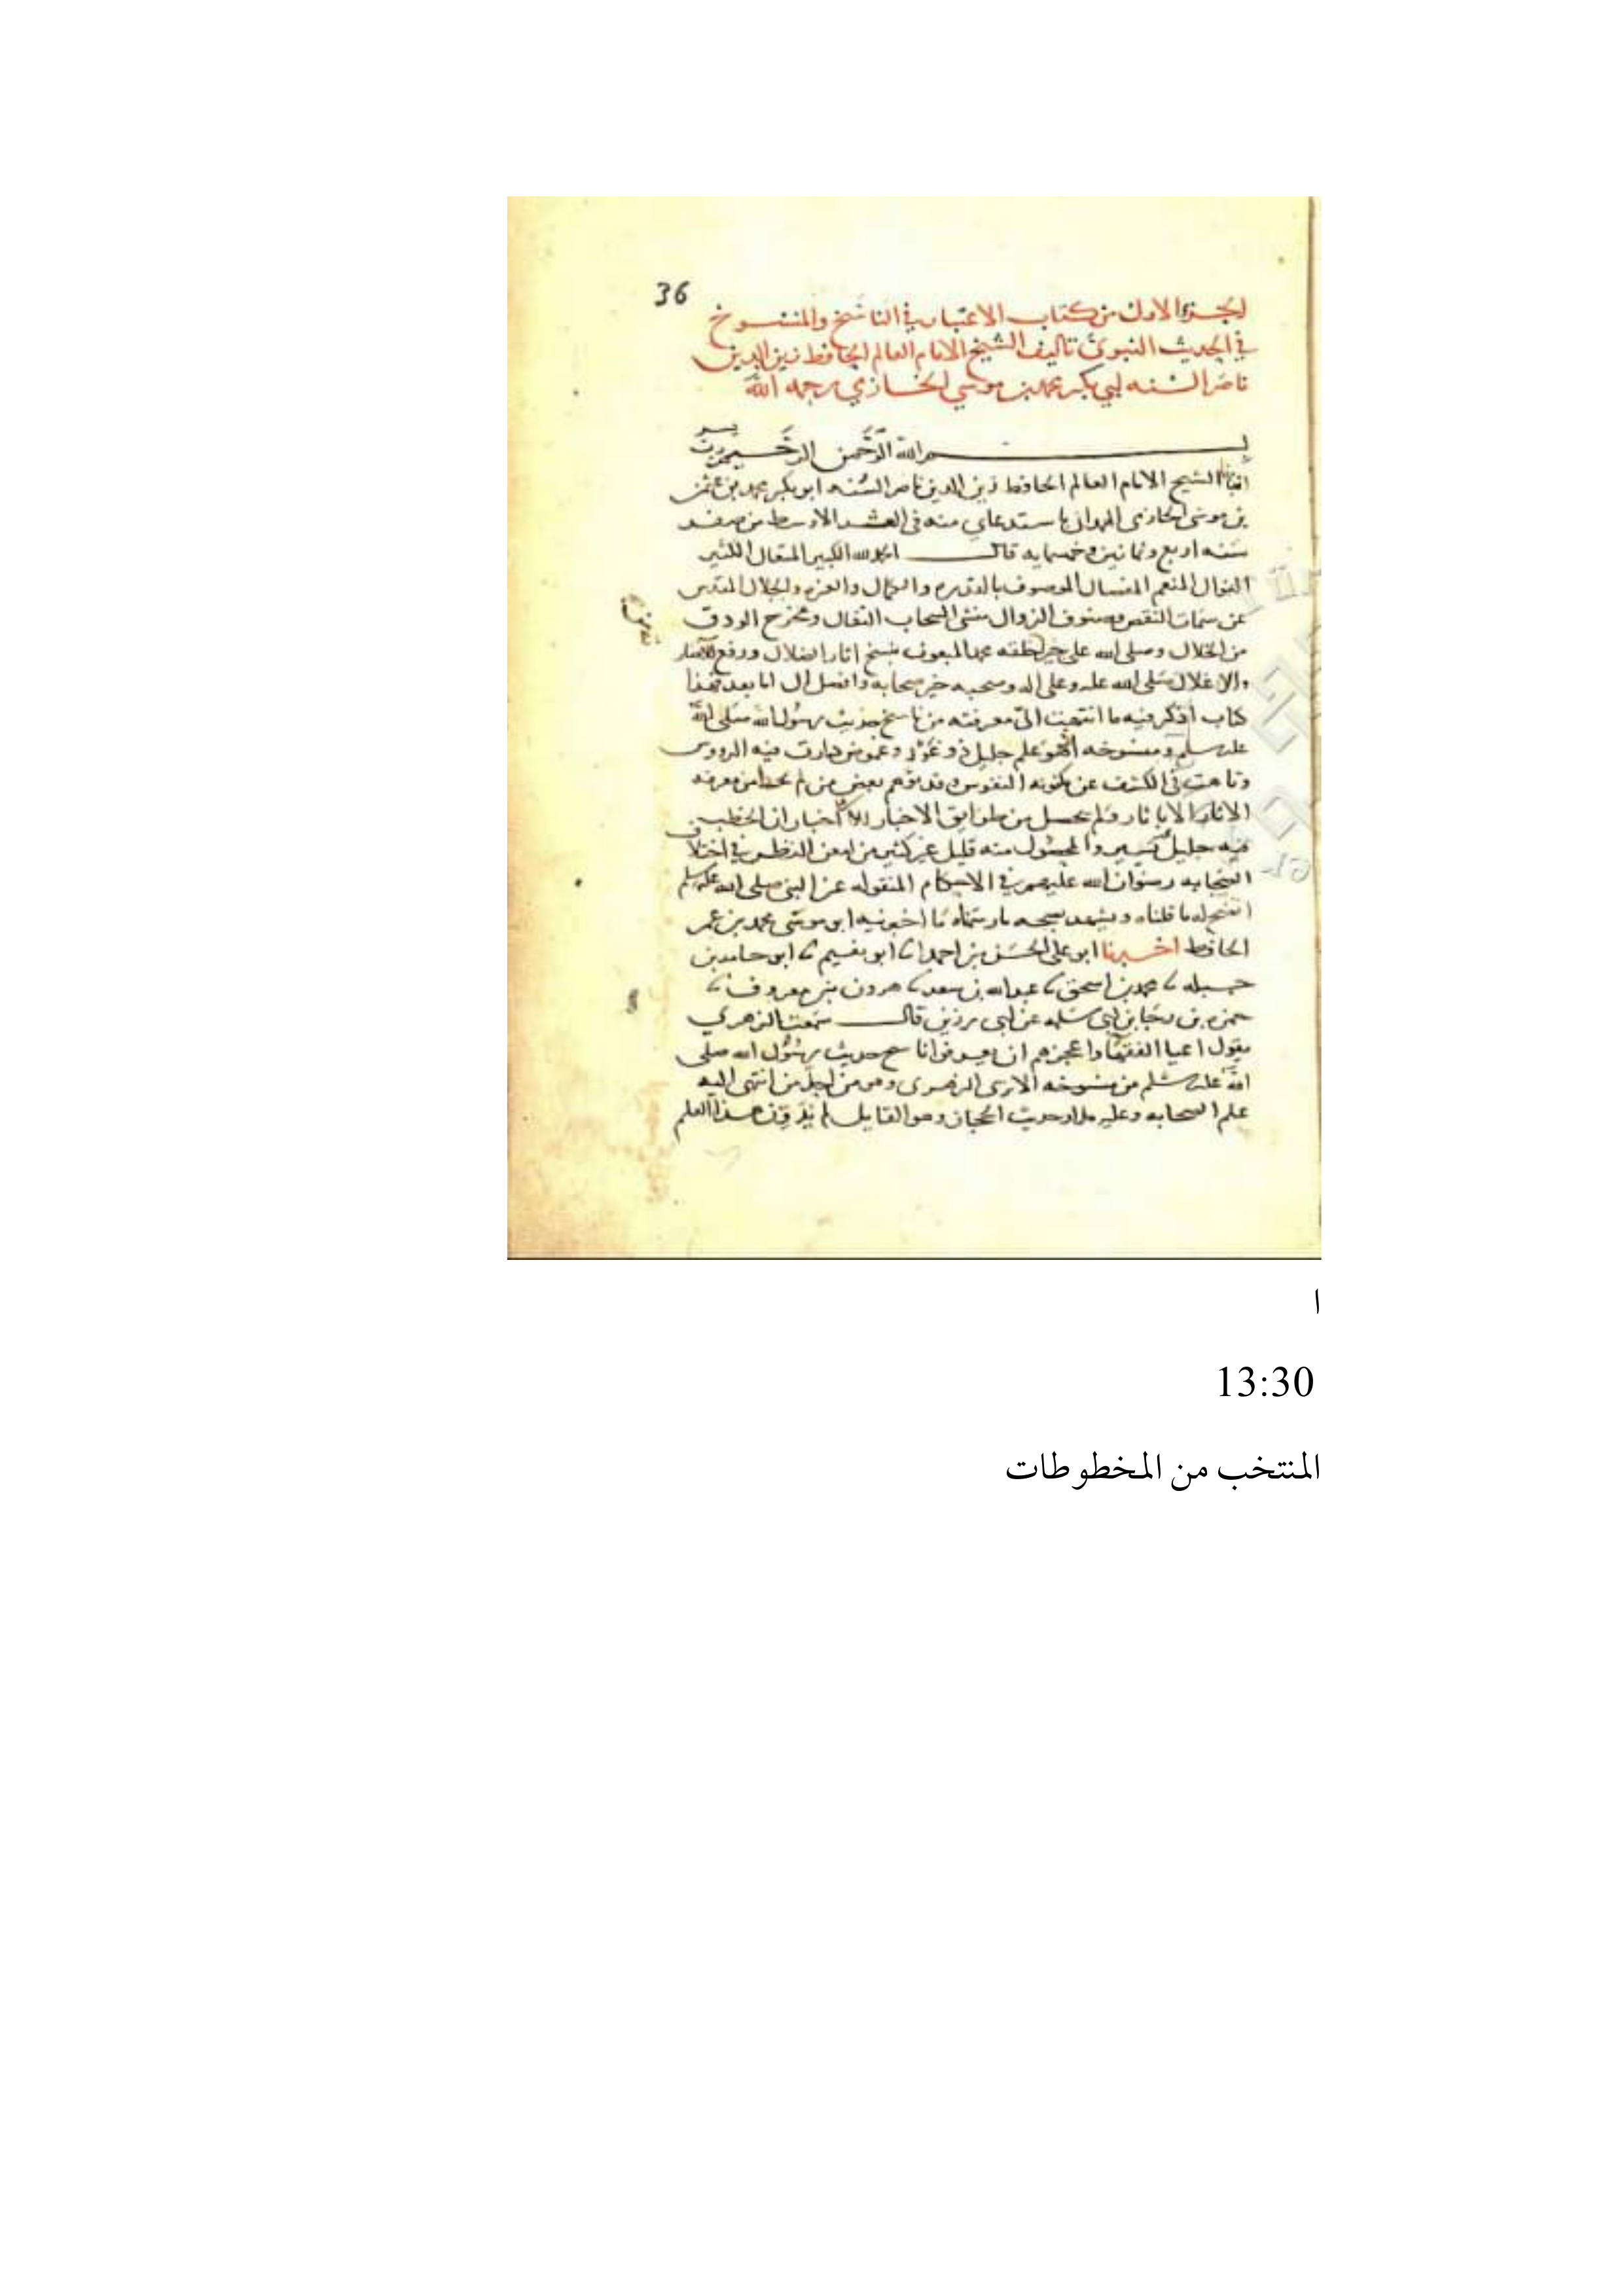 36
الجزء الاول من كتاب الاعتبار في الناسخ والمنسوخ
في الحديث النبوي تاليف الشيخ الامام العالم الحافظ زين الدين
ناصر السنه ابي بكر محمد بن موسى الحازمي رحمه الله
بسم الله الرحمن الرحيم
الشيخ الامام العالم الحافظ زين الدين ناصر السنه ابو بكر محمد بن
بن موسى الحازمي الهمداني باستدعاي منه في العشر الاوسط من صفر
سنه اربع وثمانين وخمسمايه قال الحمد لله الكبير المتعال الكثير
النوال المنعم المفضال الموصوف بالقدره والكمال والعزه والجلال المقدس
عن سمات النقص وصنوف الزوال منشي السحاب الثقال ومخرج الودق
من الخلال وصلى الله على خير خلقه محمد المبعوث بنسخ اثار الضلال ورفع الاصار
والاغلال صلى الله عليه وعلى اله وصحبه خير صحابه وافضل ال اما بعد فهذا
كتاب اذكر فيه ما انتهت الي معرفته من ناسخ حديث رسول الله صلى الله
عليه وسلم ومنسوخه اذ هو علم جليل ذو غور وغموض دارت فيه الرووس
وتاهت في الكشف عن مكنونه النفوس وقد توهم بعض من لم يحظ من معرفه
الاثار الا باثار ولم يحصل من طرايق الاخبار الا اخبار ان الخطب
فيه جليل يسير والمحصول منه قليل غير كثير ومن امعن النظر في اختلاف
الصحابه رضوان الله عليهم في الاحكام المنقوله عن النبي صلى الله عليه وسلم
اتضح له ما قلناه ويشهد بصحه ما رسمناه ما اخبرنيه ابو موسى محمد بن عمر
الحافظ اخبرنا ابو علي الحسن بن احمد ابو نعيم ابو حامد بن
جبله محمد بن اسحق عبد الله بن سعد هرون بن معروف
ضمره بن رجا بن ابي سلمه عن ابي رزين قال سمعت الزهري
يقول اعيا الفقها واعجزهم ان يعرفوا ناسخ حديث رسول الله صلى
الله عليه وسلم من منسوخه الا ترى الزهري وهو من اجل من انتهى اليه
علم الصحابه وعليه مدار حديث الحجاز وهو القايل لم يدون هذا العلم
ا
13:30
المنتخب من المخطوطات